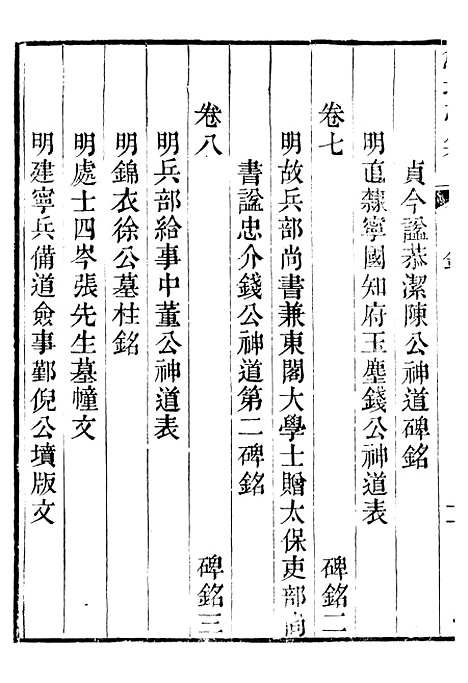 貞今諡恭潔陳公神道碑銘
明直隸寧國知府玉塵錢公神道表
卷七 碑銘二
明故兵部尚書兼東閣大學士贈太保吏部尚
書諡忠介錢公神道第二碑銘
卷八 碑銘三
明兵部給事中董公神道表
明錦衣徐公墓柱銘
明處士四岑張先生墓幢文
明建寧兵備道僉事鄞倪公墳版文